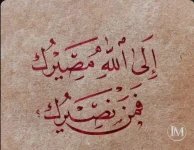 إِلَى اللّٰهِ مَصِيْرُك
فَمَنْ نَصِيْرُك
JM